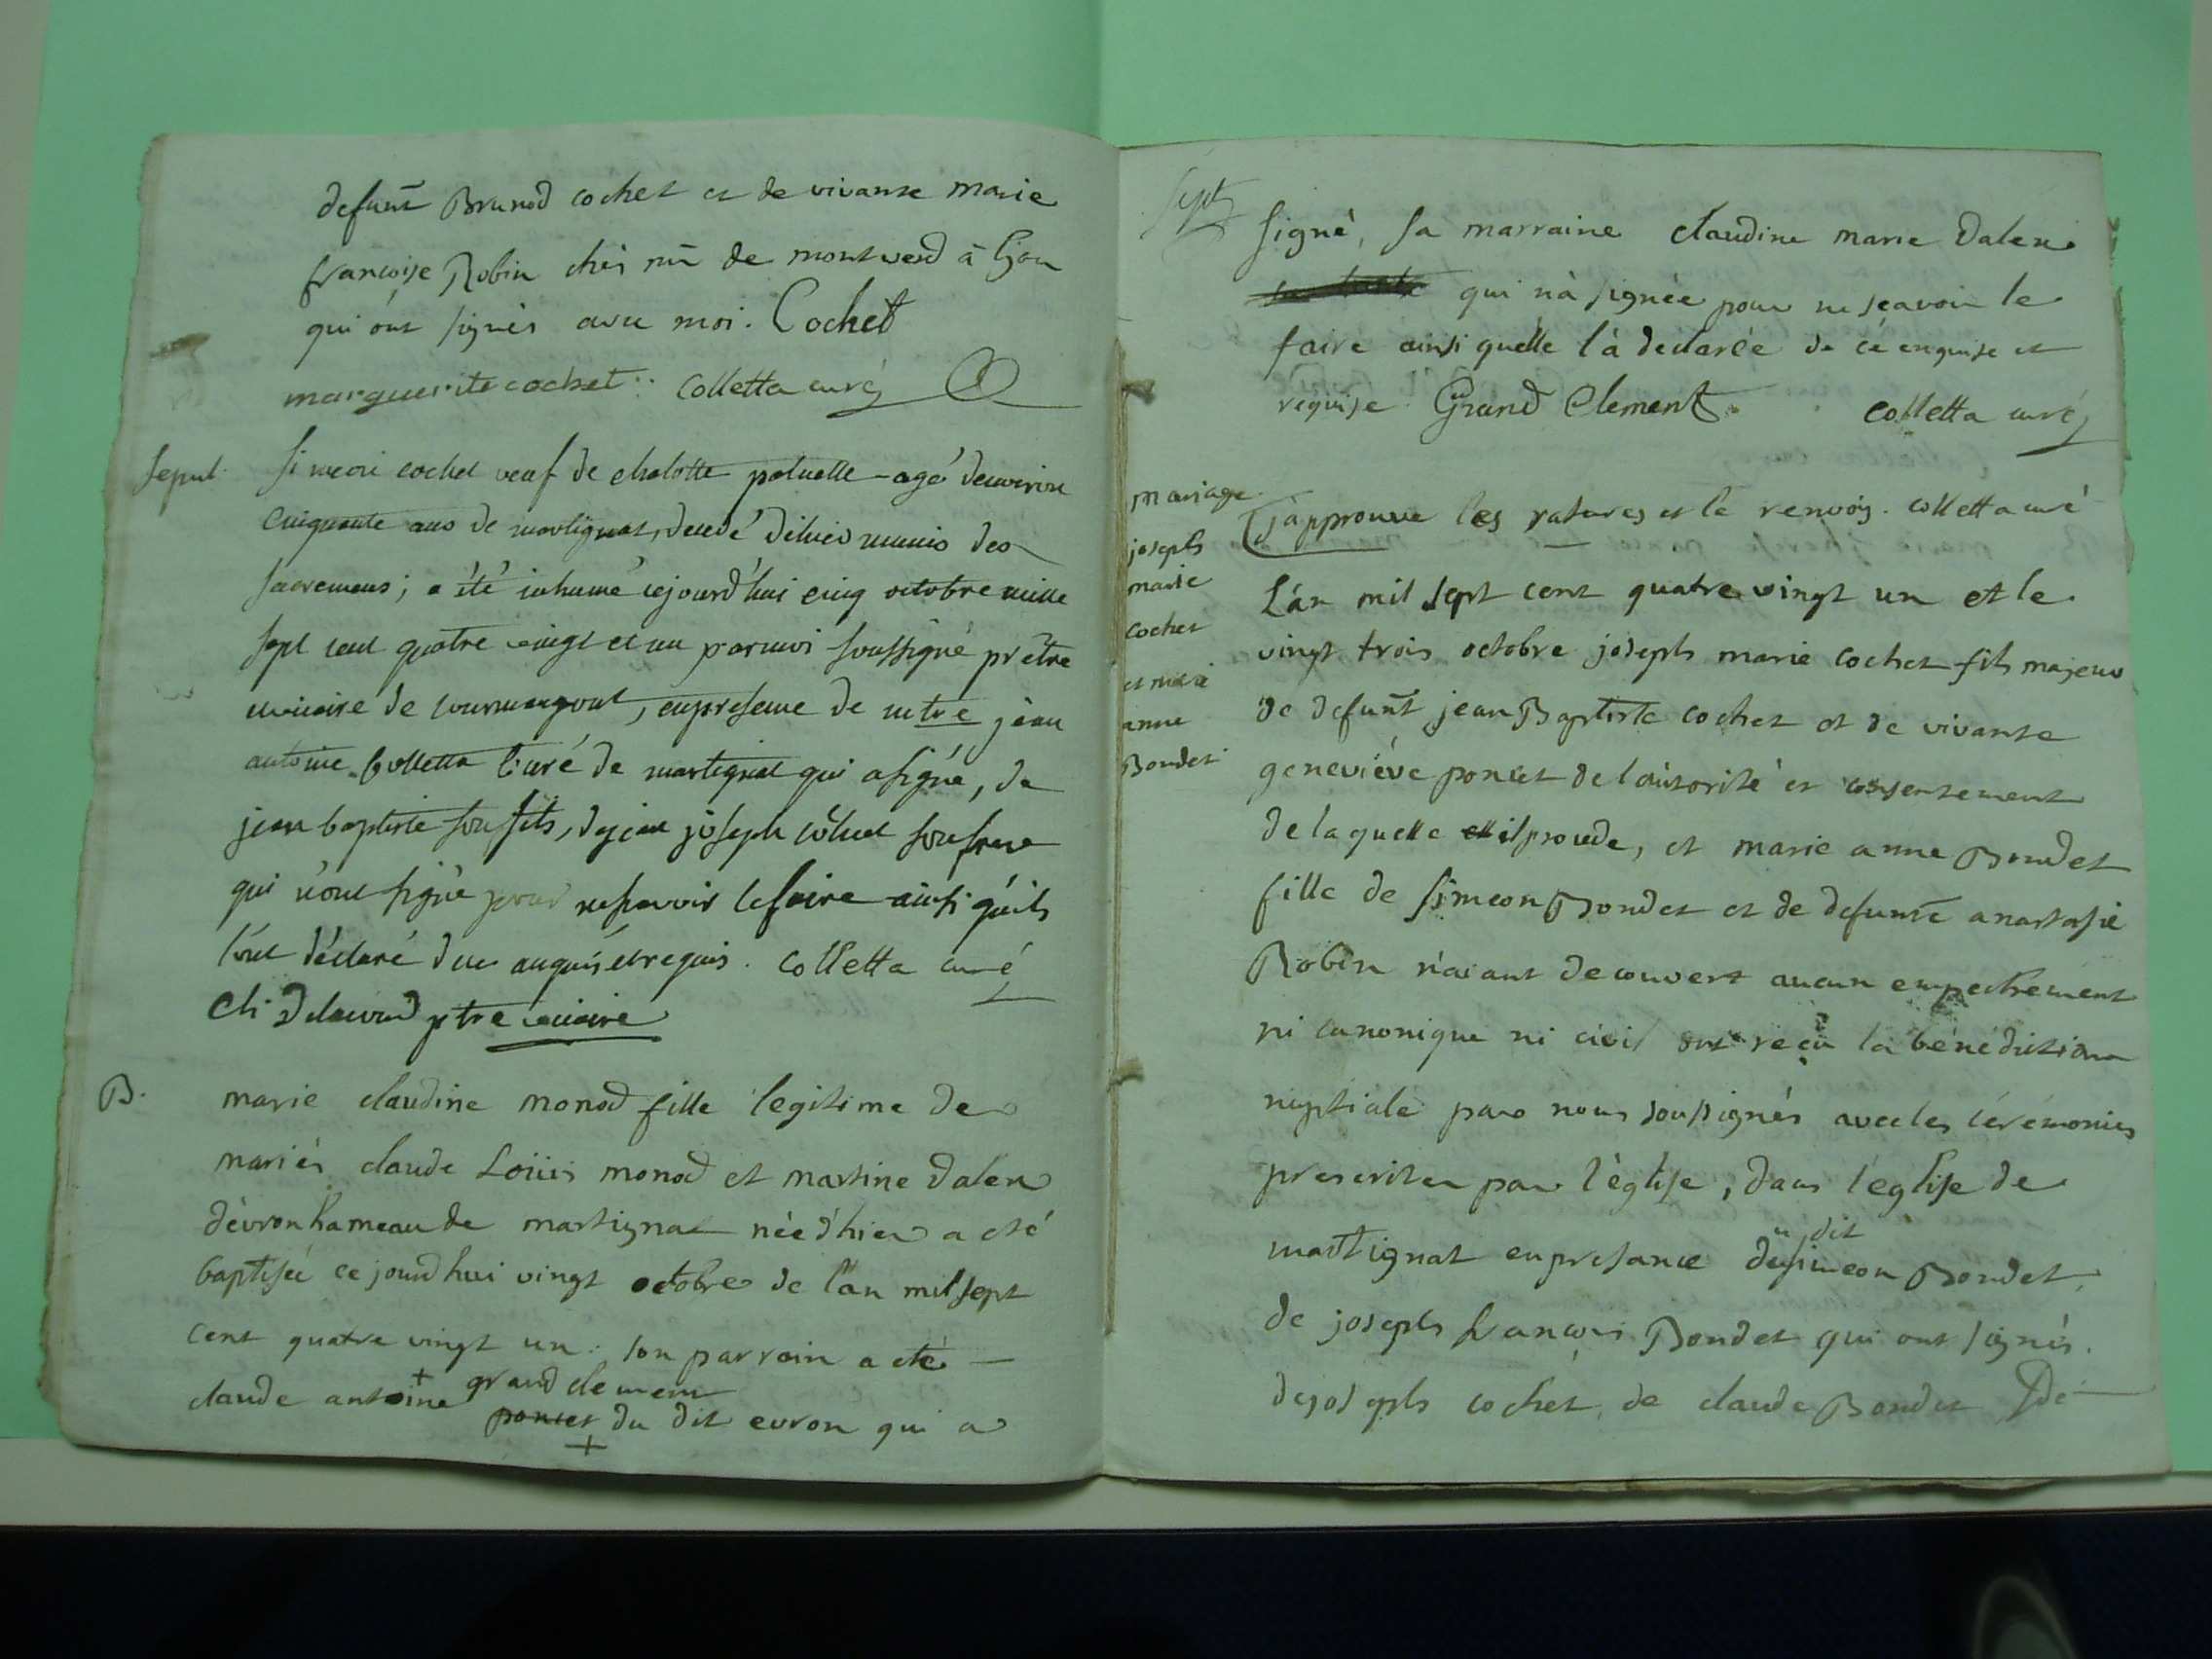 defunt Brunod cochet et de vivante marie
francoise Robin chés mr de montverd à Lion
qui ónt signés avec moi. Cochet
marguerite cochet. Colletta curé
Sepul. Simeon cochet veuf de chalotte poluatte agé denviron
Cinquante ans de martignat, decedé d'hier munis des
sacremens; a été inhumé cejourd'hui cinq octobre mille
sept cent quatre vingt et un parmoi soussigné prêtre
vicaire de , enpresence de mtre jèan
antoine Colletta Curé de martignat qui asigné, de
jean baptiste son fils, dejean joseph cochet son frere
qui n'ont signé pour nesçavoir lefaire ainsi qu'ils
l'ont déclaré de ce enquis et requis. Colletta curé
ptre vicaire
B. marie claudine monod fille legitime de
mariés claude Loüis monod et martine Dalen
dèvron hameau de martignat née d'hier a eté
baptisée ce jourdhui vingt octobre de l'an mil sept
cent quatre vingt un. son parrain a eté
claude antoine + grand clement
poncet du dit evron qui a
+
Sept
signé, sa marraine claudine marie Dalen
qui n'à signée pour ne sçavoir le
faire ainsi quélle l'à déclarée de cé enquise et
requise Grand Clement. Colletta curé
j'approuve les ratures et le renvoy. Colletta curé
mariage
joseph
marie
cochet
et marie
anne
Bondet
L'àn mil sept cent quatre vingt un et le
vingt trois octobre joseph marie cochet fils majeur
de defunt jean Baptiste cochet et de vivante
geneviéve poncet de l'autorité et consentement
de laquelle il procede, et marie anne Bondet
fille de simeon Bondet et de defunte anastasie
Robin n'aiant decouvert aucun empechement
ni canonique ni civil ont reçu la bénédiction
nuptiale par nous soussignés avec les cérémonies
prescrites par l'église, dans l'eglise de
martignat enpresance du dit simeon Bondet,
de joseph francois Bondet qui ont signés.
dejoseph cochet, de claude Bondet De